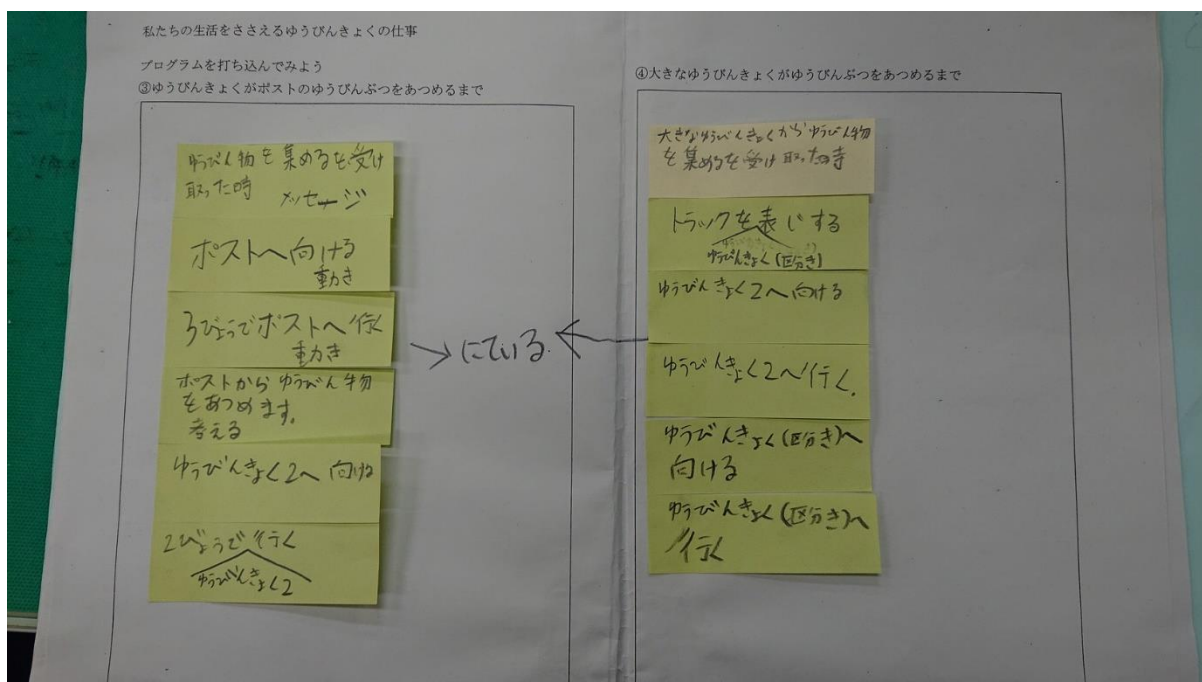 私たちの生活をささえるゆうびんきょくの仕事
プログラムを打ち込んでみよう
③ゆうびんきょくがポストのゆうびんぶつをあつめるまで
ゆうびん物を集めるを受け
取った時 メッセージ
ポストへ向ける
動き
3びょうでポストへ行く
動き
ポストからゆうびん物
をあつめます。
考える
ゆうびんきょく2へ向ける
2びょうで行く
ゆうびんきょく2
にている
④大きなゆうびんきょくがゆうびんぶつをあつめるまで
大きなゆうびんきょくからゆうびん物
を集めるを受け取った時
トラックを表じする
ゆうびんきょく(区分き)
ゆうびんきょく2へ向ける
ゆうびんきょく2へ行く.
ゆうびんきょく(区分き)へ
向ける
ゆうびんきょく(区分き)へ
行く